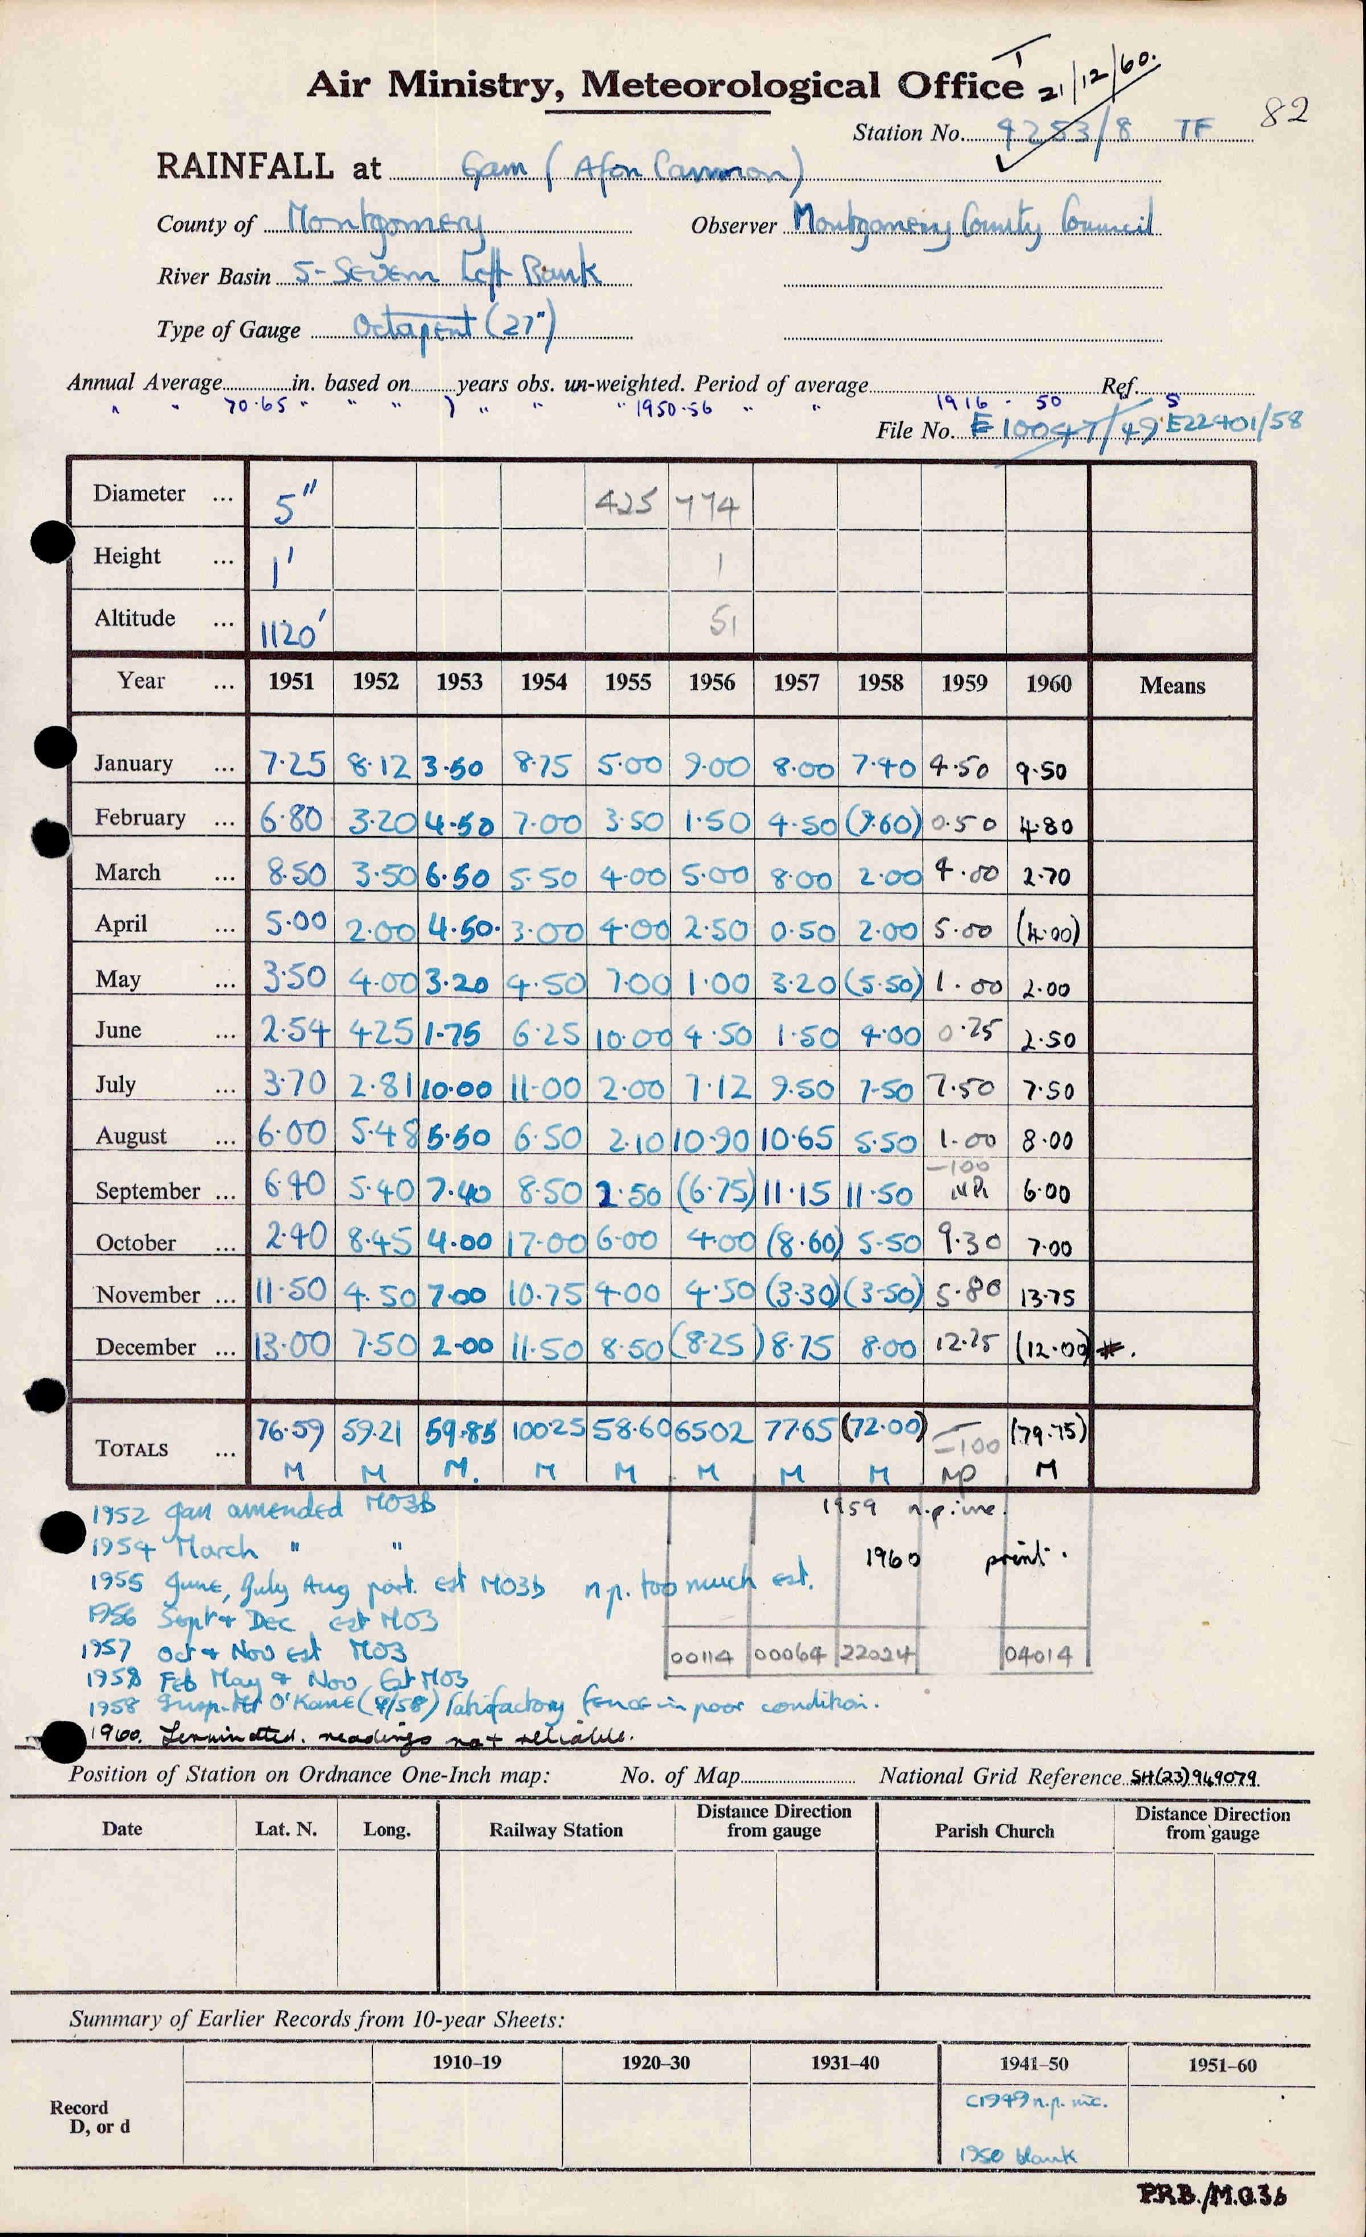 Air Ministry, Meteorological Office
T 21/12/60.
82
Station No. 4253/8 TF
RAINFALL at Gam (Afon Cannon)
County of Montgomery Observer Montgomery County Council
River Basin 5-Severn Left Bank
Type of Gauge Octapent (27")
Annual Average in. based on years obs. un-weighted. Period of average Ref.
" " 70.65 " " " ) " " " 1950-56 " " 1916 - 50 S
File No. E10047/49 E22401/58
Diameter ... 5" 425 774
Height ... 1' 1
Altitude ... 1120' 51
Year ... 1951 1952 1953 1954 1955 1956 1957 1958 1959 1960 Means
January ... 7.25 8.12 3.50 8.75 5.00 9.00 8.00 7.40 4.50 9.50
February ... 6.80 3.20 4.50 7.00 3.50 1.50 4.50 (9.60) 0.50 4.80
March ... 8.50 3.50 6.50 5.50 4.00 5.00 8.00 2.00 4.00 2.70
April ... 5.00 2.00 4.50. 3.00 4.00 2.50 0.50 2.00 5.00 (4.00)
May ... 3.50 4.00 3.20 4.50 7.00 1.00 3.20 (5.50) 1.00 2.00
June ... 2.54 4.25 1.75 6.25 10.00 4.50 1.50 4.00 0.75 2.50
July ... 3.70 2.81 10.00 11.00 2.00 7.12 9.50 7.50 7.50 7.50
August ... 6.00 5.48 5.50 6.50 2.10 10.90 10.65 5.50 1.00 8.00
September ... 6.40 5.40 7.40 8.50 2.50 (6.75) 11.15 11.50 -100 6.00
October ... 2.40 8.45 4.00 17.00 6.00 4.00 (8.60) 5.50 9.30 7.00
November ... 11.50 4.50 7.00 10.75 4.00 4.50 (3.30) (3.50) 5.80 13.75
December ... 13.00 7.50 2.00 11.50 8.50 (8.25) 8.75 8.00 12.25 (12.00) #.
TOTALS ... 76.59 59.21 59.85 100.25 58.60 65.02 77.65 (72.00) -100 (79.75)
M M M. M M M M M NP M
1952 Jan amended MO3b 1959 n.p. inc.
1954 March " " 1960 print.
1955 June, July Aug part. est MO3b n.p. too much est.
1956 Sept & Dec est MO3
1957 Oct & Nov est MO3 00114 00064 22024 04014
1958 Feb May & Nov Est MO3
1958 Insp. Mr O'Kane (4/58) Satisfactory fence in poor condition.
1960. Terminated. readings not reliable.
Position of Station on Ordnance One-Inch map: No. of Map National Grid Reference SH(23)949079
Date Lat. N. Long. Railway Station Distance Direction from gauge Parish Church Distance Direction from gauge
Summary of Earlier Records from 10-year Sheets:
1910–19 1920–30 1931–40 1941–50 1951–60
Record
D, or d
C1949 n.p. inc.
1950 blank
P.R.B./M.O.3b